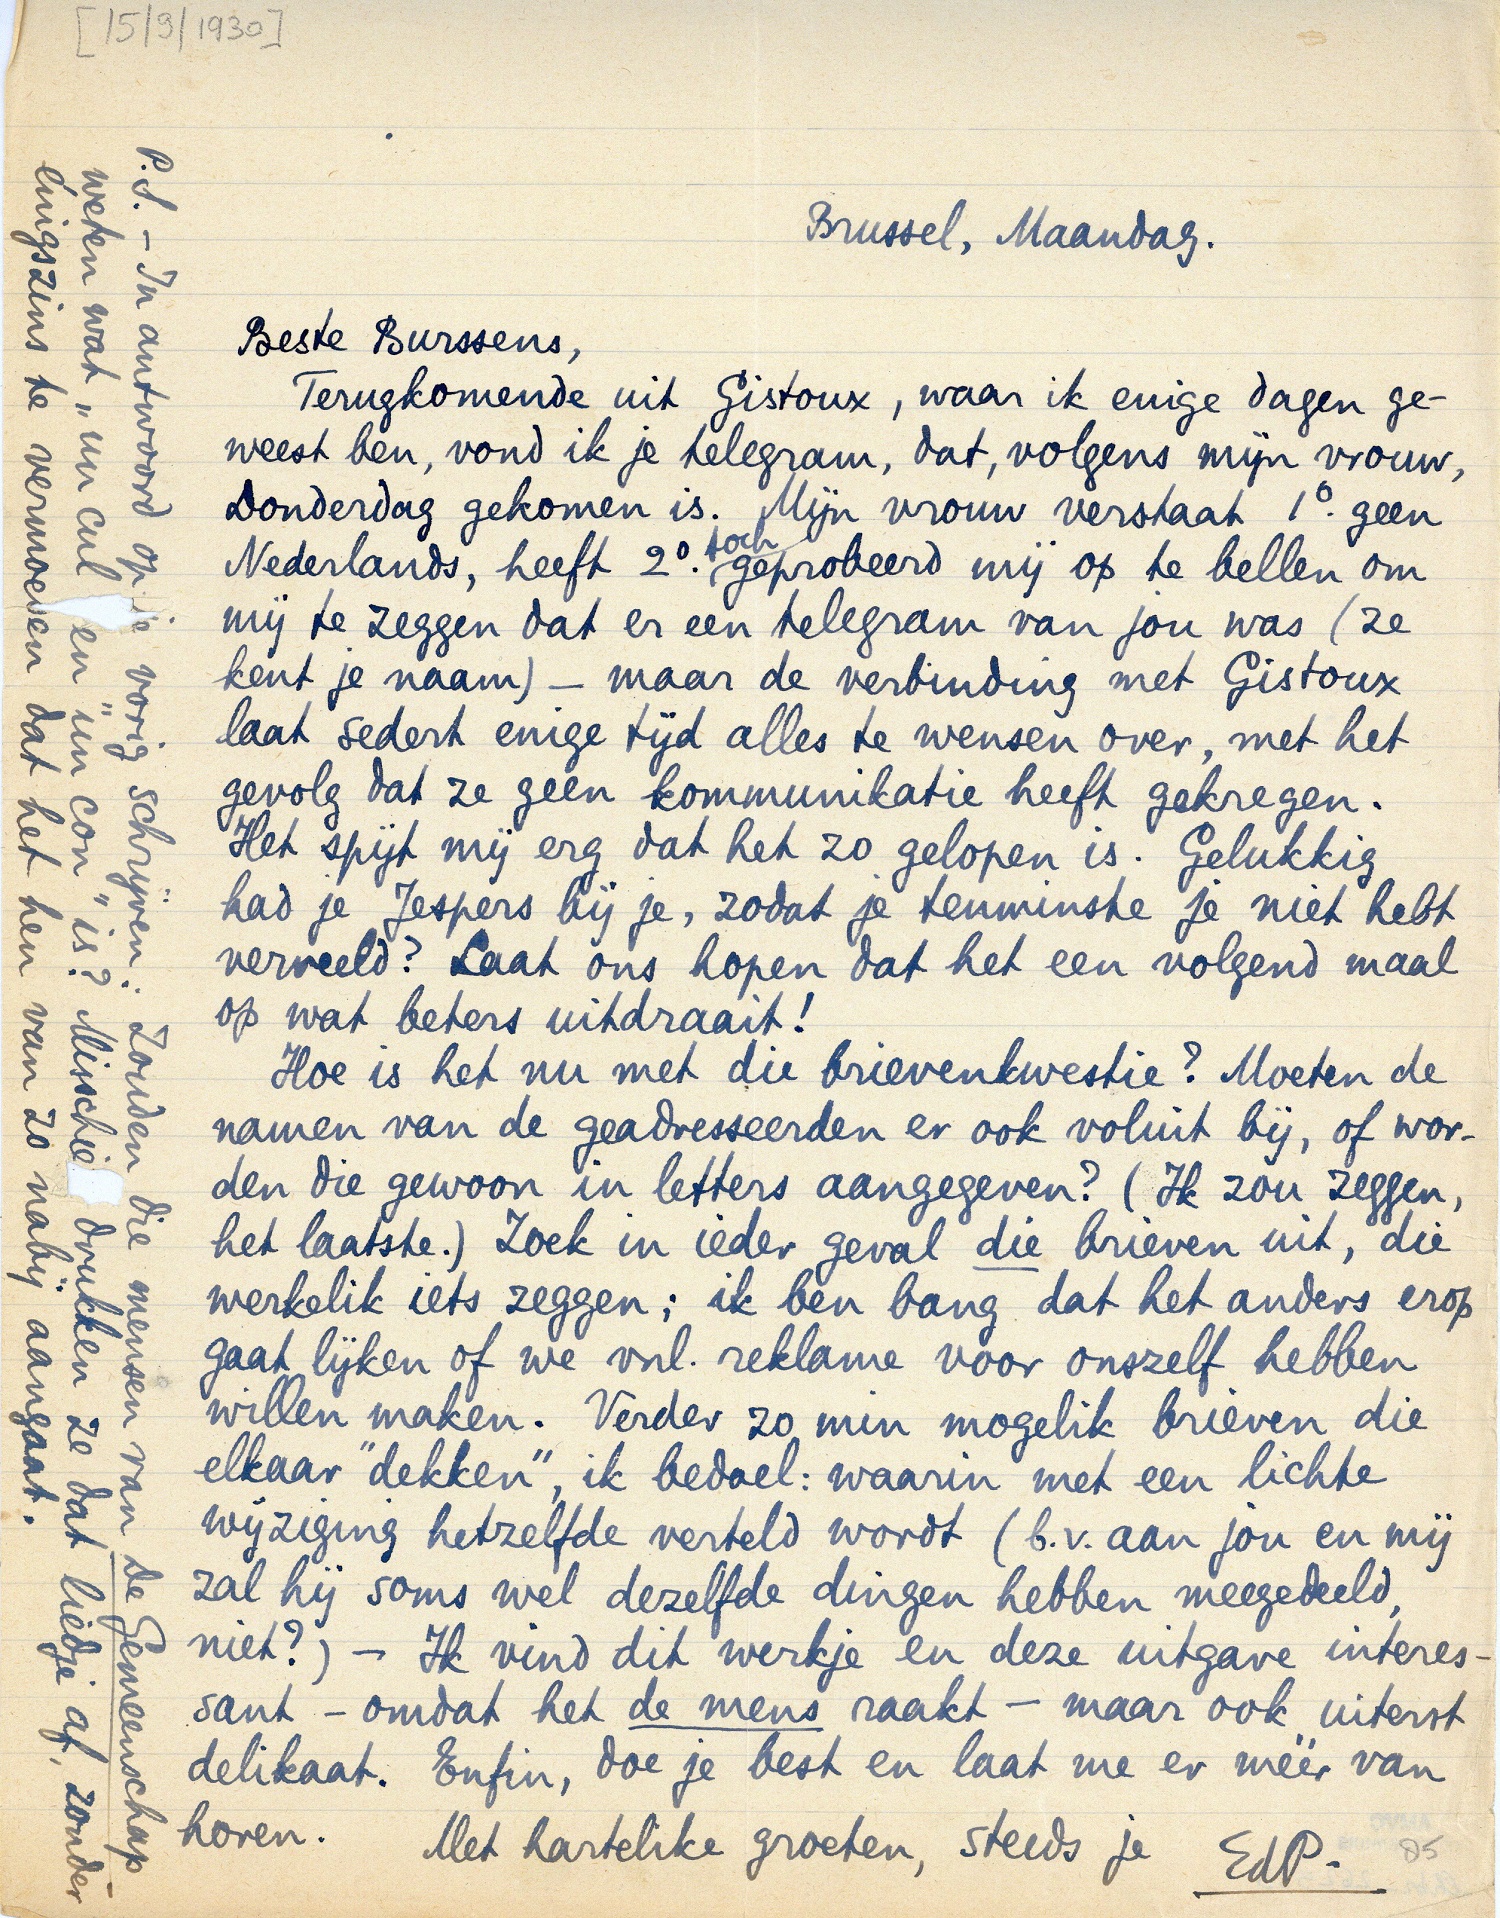 [15/9/1930]
Brussel, Maandag.
Beste Burssens,
Terugkomende uit Gistoux, waar ik enige dagen ge-
weest ben, vond ik je telegram, dat, volgens mijn vrouw,
Donderdag gekomen is. Mijn vrouw verstaat 1º. geen
Nederlands, heeft 2º. toch geprobeerd mij op te bellen om
mij te zeggen dat er een telegram van jou was (ze
kent je naam) – maar de verbinding met Gistoux
laat sedert enige tijd alles te wensen over, met het
gevolg dat ze geen kommunikatie heeft gekregen.
Het spijt mij erg dat het zo gelopen is. Gelukkig
had je Jespers bij je, zodat je tenminste je niet hebt
verveeld? Laat ons hopen dat het een volgend maal
op wat beters uitdraait!
Hoe is het nu met die brievenkwestie? Moeten de
namen van de geadresseerden er ook voluit bij, of wor-
den die gewoon in letters aangegeven? (Ik zou zeggen,
het laatste.) Zoek in ieder geval die brieven uit, die
werkelik iets zeggen; ik ben bang dat het anders erop
gaat lijken of we vnl. reklame voor onszelf hebben
willen maken. Verder zo min mogelik brieven die
elkaar "dekken", ik bedoel: waarin met een lichte
wijziging hetzelfde verteld wordt (b.v. aan jou en mij
zal hij soms wel dezelfde dingen hebben meegedeeld,
niet?) – Ik vind dit werkje en deze uitgave interes-
sant – omdat het de mens raakt – maar ook uiterst
delikaat. Enfin, doe je best en laat me er méér van
horen. Met hartelike groeten, steeds je EdP.
85
P.S. – In antwoord op je vorig schrijven: Zouden die mensen van de Gemeenschap
weten wat "un cul en "un con" is? Misschie drukken ze dat liedje af, zonder
énigszins te vermoeden dat het hen van zo nabij aangaat.